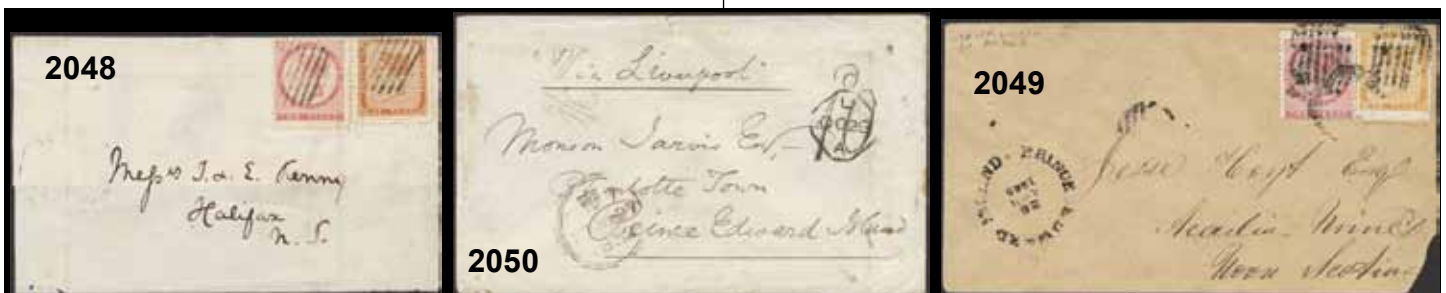 2048
Mess^rs T. & E. Kenny
Halifax
N. S.
"Via Liverpool"
Monson Jarvis Esq,
Charlotte Town
Prince Edward Island
2050
2049
PRINCE EDWARD ISLAND
Jesse Hoyt Esq
Acadia Mines
Nova Scotia